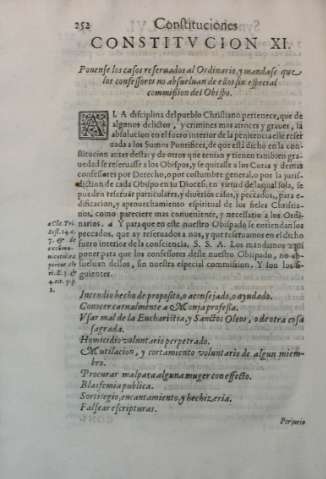 252 Constituciones
CONSTITVCION XI.
Ponense los casos reseruados al Ordinario, y mandase que
los confessores no absueluan de ellos sin especial
commission del Obispo.
A LA disciplina del pueblo Christiano pertenece, que de
algunos delictos, y crimines mas atroces y graues, la
absolucion en el foro interior de la penitencia esse reser
uada a los Sumos Pontifices, de que està dicho en la con
stitucion antes desta: y de otros que tenian y tienen tambien graue
dad se reseruasse a los Obispos, y se quitasse a los Curas y demas
confessores por Derecho, o por costumbre general, o por la juris-
diction de cada Obispo en su Diocesi. en virtud de la qual sola, se
pueden reseruar particulares, y diuersos casos, y peccados, para e-
dificacion, y aprouechamiento espiritual de los fieles Christia-
nos, como pareciere mas conueniente, y necessatio a los Ordi-
narios. a Y para que en este nuestro Obispado se entiendan los
peccados, que ay reseruados a nos, y que reseruamos en el dicho
fuero interior de la consciencia. S. S. A. Los mandamos aqui
poner para que los confessores deste nuestro Obispado, no ab-
sueluan dellos, sin nuestra especial commission. Y son los si-
guientes.
a Cōc. Tri
7. &
Incendio hecho de proposito, o aconsejado, o ayudado.
Conocer carnalmente a Monja professa.
Vsar mal de la Eucharistia, y Sanctos Oleos, o de otra cosa
sagrada.
Homicidio voluntario perpetrado.
Mutilacion, y cortamiento voluntario de algun miem-
bro.
Procurar malpara alguna muger con effecto.
Blasfemia publica.
Sortilegio, encantamiento, y hechizeria.
Falsear escripturas.
Perjurio